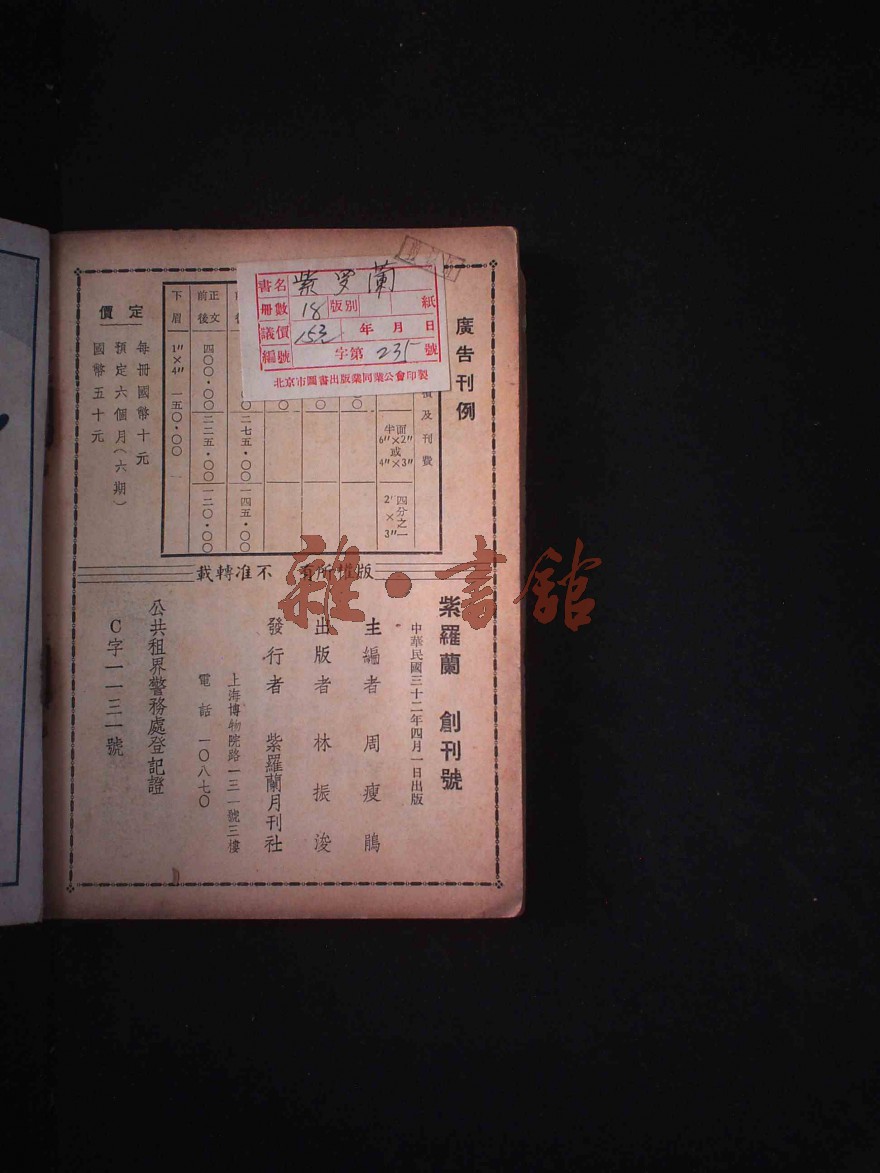 書名 紫罗蘭
冊數 18 版别 紙
議價 153 年 月 日
編號 字第 235 號
北京市圖書出版業同業公會印製
廣告刊例
及刊費
半面
6"×2"
或
4"×3"
四分之一
2"×3"
二七五·〇〇
一四五·〇〇
正文前後
四〇〇·〇〇
二二五·〇〇
一二〇·〇〇
下眉
1"×4"
一五〇·〇〇
定價
每冊國幣十元
預定六個月(六期)
國幣五十元
版權所有 不准轉載
紫羅蘭 創刊號
中華民國三十二年四月一日出版
主編者 周瘦鵑
出版者 林振浚
發行者 紫羅蘭月刊社
上海博物院路一三一號三樓
電話 一〇八七〇
公共租界警務處登記證
C字一一三一號
雜·書舘